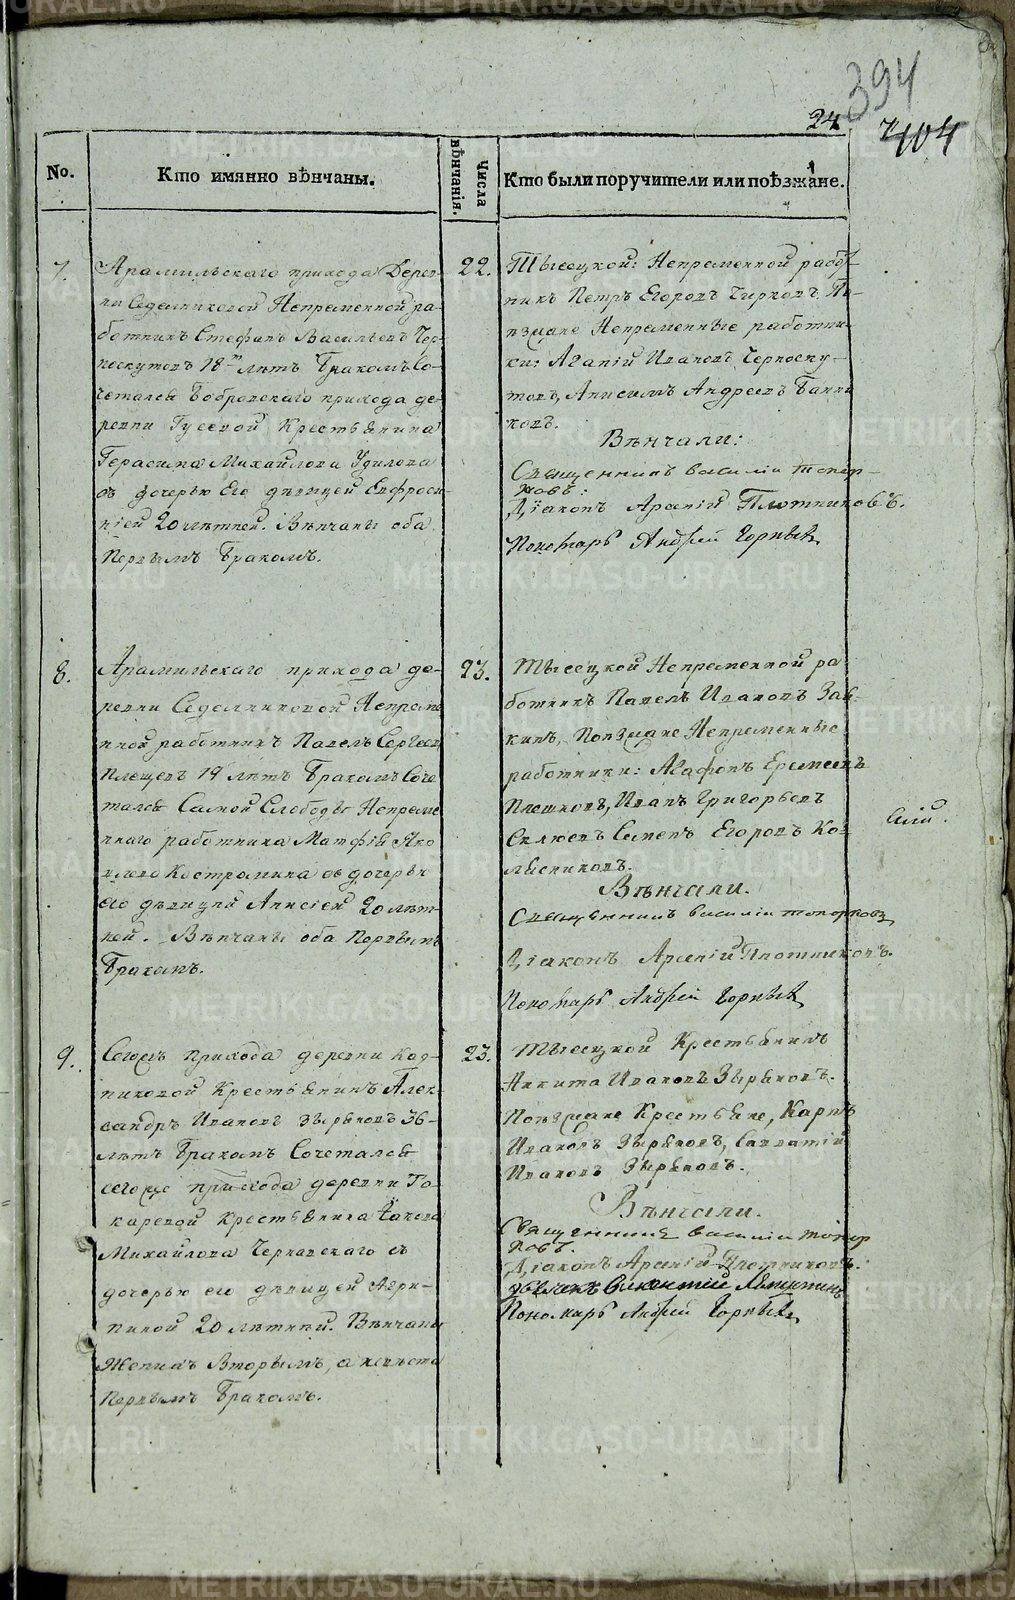 394
24
404
No.
Кто имянно вѣнчаны.
Числа вѣнчанія.
Кто были поручители или поѣзжане.
7.
Арамильскаго прихода Дерев-
ни Седельниковой Непременной ра-
ботникъ Стефанъ Васильевъ Чер-
носкутовъ 18 лѣтъ Бракомъ Со-
четался Бобровскаго прихода де-
ревни Гусевой Крестьянина
Герасима Михайлова
съ дочерью Его дѣвицей Евфроси-
ніей 20 лѣтней. Вѣнчаны оба
Первымъ Бракомъ.
22.
Тысецкой: Непременной рабо-
никъ Петръ Егоровъ Чирковъ. По-
пзщане Непременные работни-
ки: Агапій Ивановъ Черноску-
товъ, Анисимъ Андреевъ Банни-
ковъ.
Вѣнчали:
Священникъ василіи топор-
ковъ:
Діаконъ Арсеній Плотниковъ.
Пономарь Андрей Горныхъ
8.
Арамильскаго прихода де-
ревни Седельниковой Непреме-
нной работникъ Павелъ Сергеев
19 лѣтъ Бракомъ Соче
тался Самой Слободы Непреме
ннаго работника Матфія Яко
влева Костромина съ дочерью
его дѣвицей Анисіей 20 лѣт-
ней. Вѣнчаны оба Первымъ
Бракомъ.
23.
Тысецкой Непременной ра
ботникъ Павелъ Ивановъ
Поѣзжане Непременные
работники: Агафонъ Еремеевъ
Иванъ Григорьевъ
Семенъ Егоровъ Ко-
лѣсниковъ.
Вѣнчали.
Священникъ василіи топорковъ
Діаконъ Арсеній Плотниковъ.
Пономарь Андрей Горныхъ
9.
Сегожъ прихода деревни Кад-
никовой Крестьянинъ Алек-
сандръ Ивановъ Зыряновъ 36
лѣтъ Бракомъ Сочетался
сегоже прихода деревни То-
каревой Крестьянина Іакова
Михайлова Чернавскаго съ
дочерью его дѣвицей Агри-
пиной 20 лѣтней. Вѣнчаны
Женихъ Вторымъ, а невѣста
Первымъ Бракомъ.
23.
Тысецкой Крестьянинъ
Никита Ивановъ Зыряновъ.
Поѣзжане Крестьяне, Карпъ
Ивановъ Зыряновъ, Савватій
Ивановъ Зыряновъ.
Вѣнчали.
Священникъ василіи топор
ковъ.
Діаконъ Арсеній Плотниковъ.
Пономарь Андрей Горныхъ
METRIKI.GASO-URAL.RU